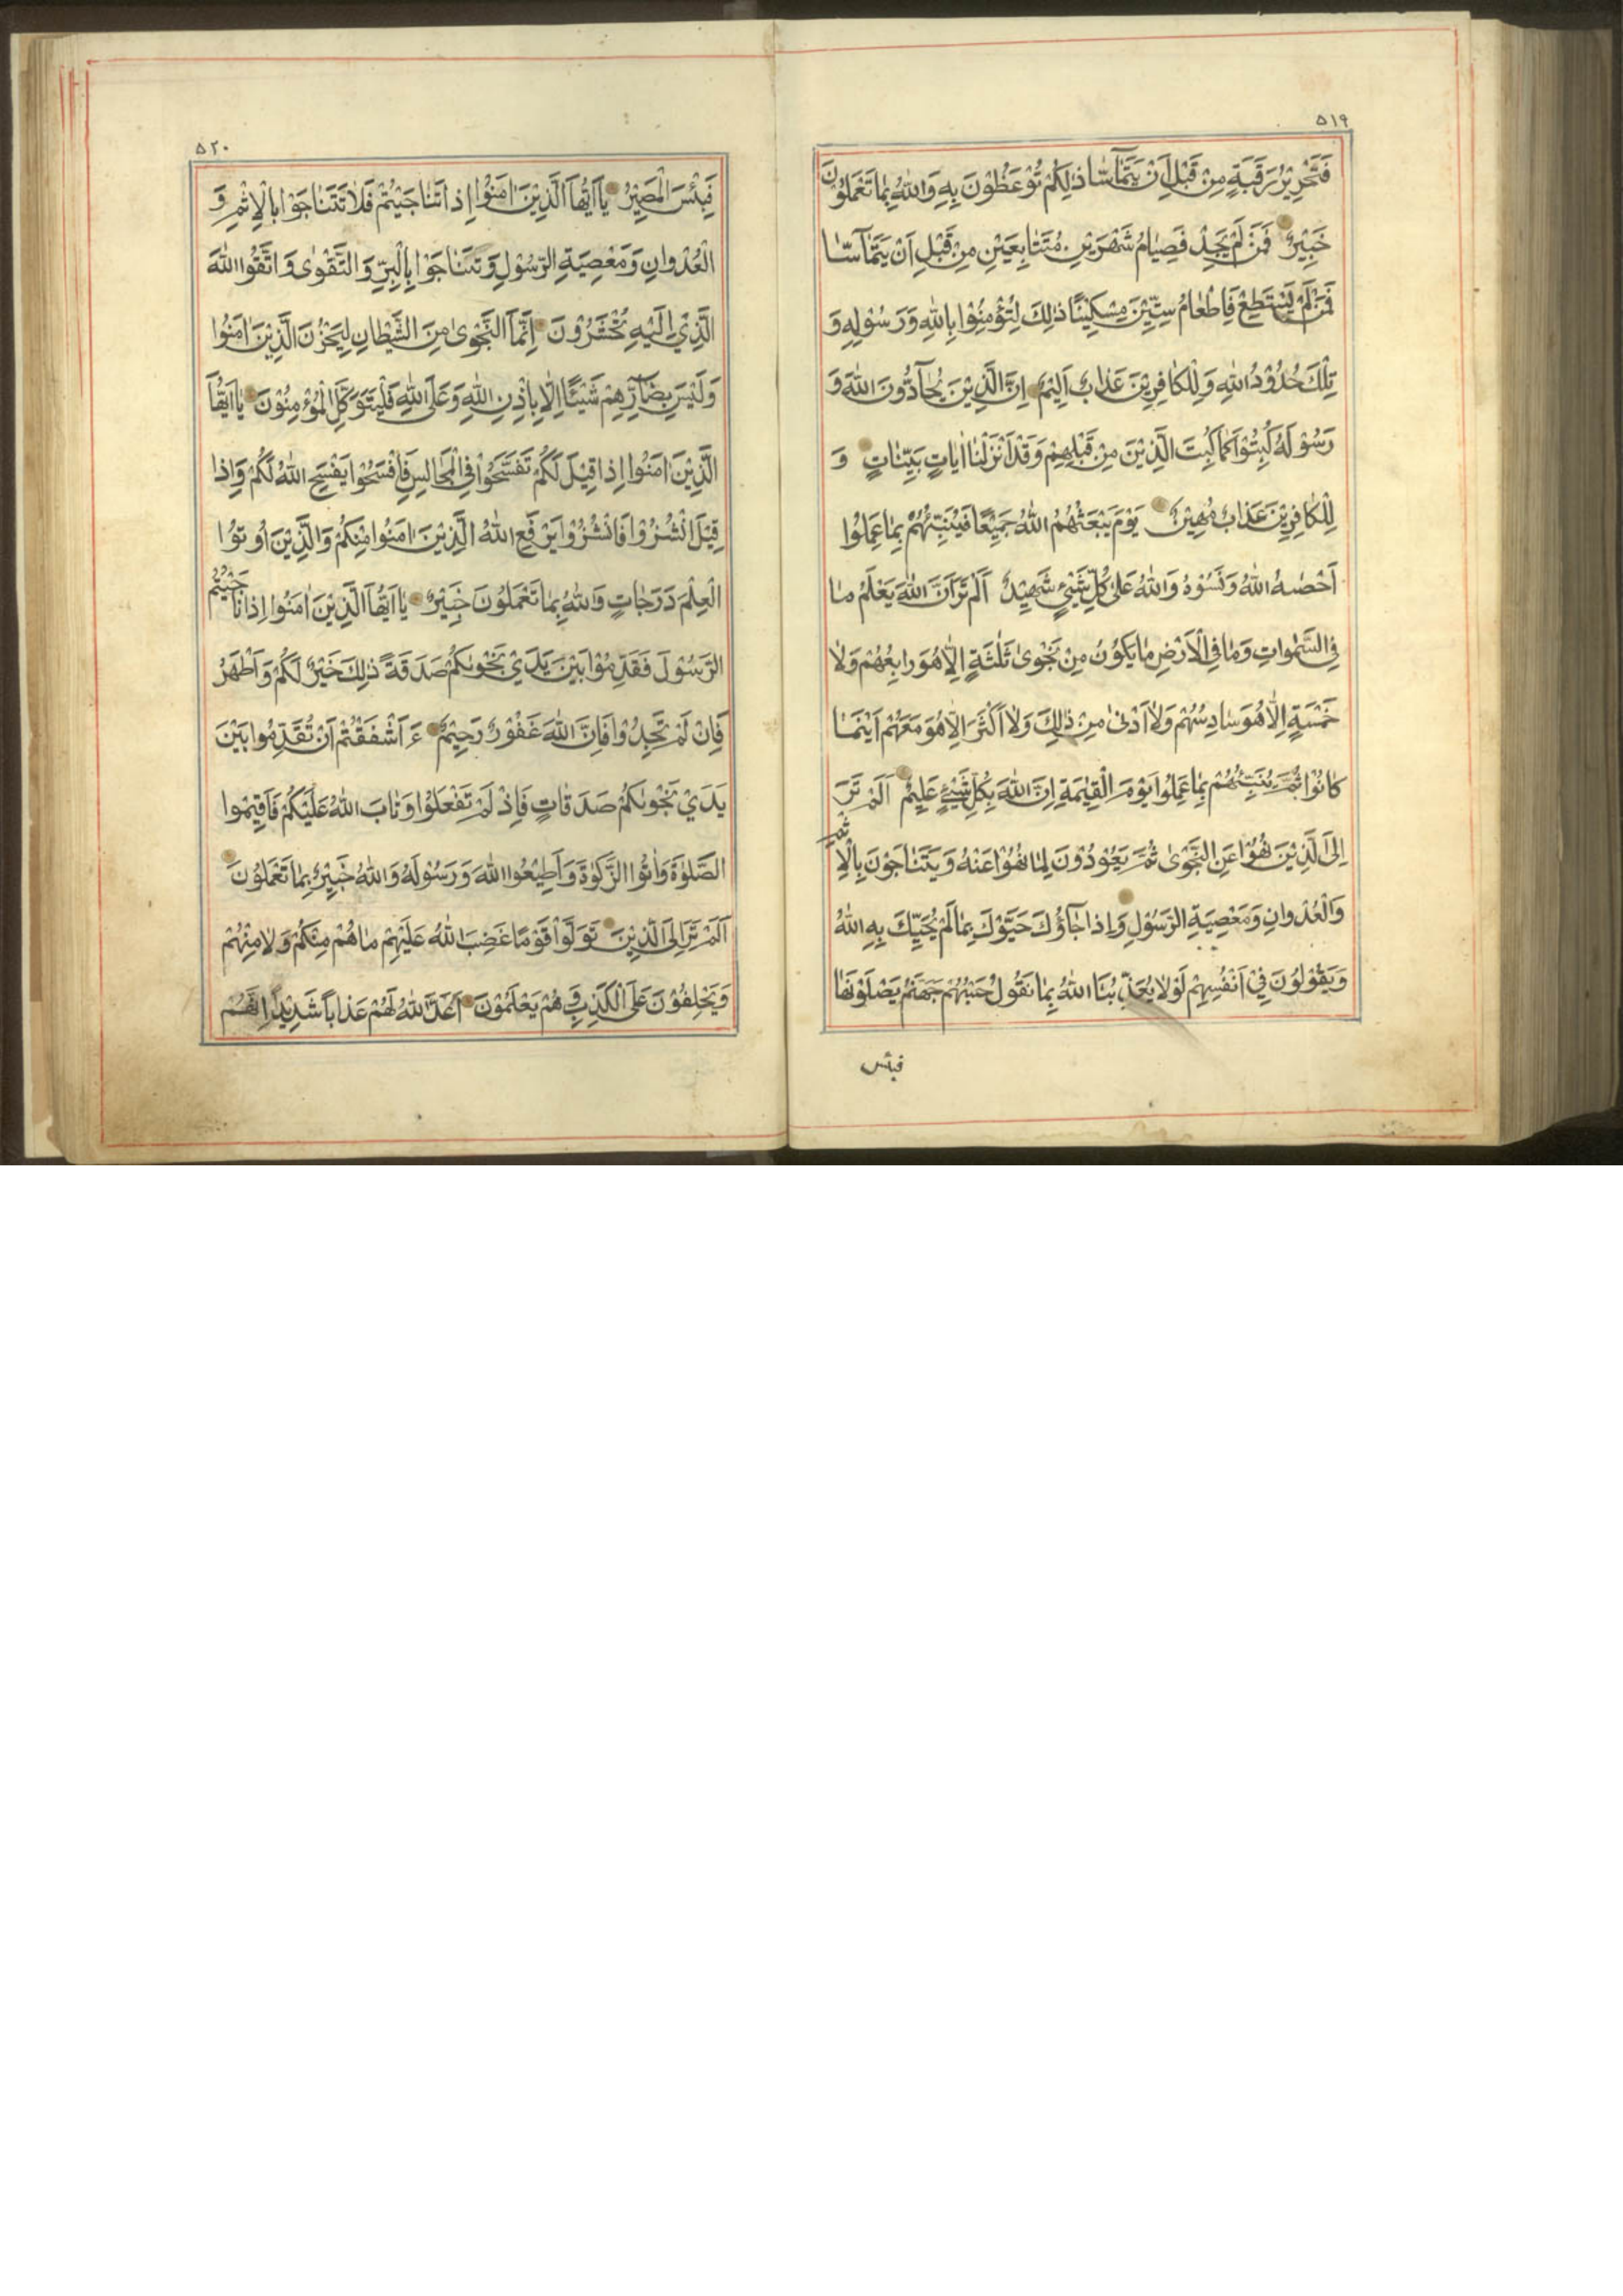 ٥١٩
فَتَحْرِيْرُ رَقَبَةٍ مِنْ قَبْلِ اَنْ يَتَمَآسَّا ذٰلِكُمْ تُوْعَظُوْنَ بِهِ وَاللّٰهُ بِمٰا تَعْمَلُوْنَ
خَبِيْرٌ فَمَنْ لَمْ يَجِدْ فَصِيٰامُ شَهْرَيْنِ مُتَتٰابِعَيْنِ مِنْ قَبْلِ اَنْ يَتَمٰآسّٰا
فَمَنْ لَمْ يَسْتَطِعْ فَاِطْعٰامُ سِتِّيْنَ مِسْكِيْنًا ذٰلِكَ لِتُؤْمِنُوْا بِاللّٰهِ وَرَسُوْلِهِ وَ
تِلْكَ حُدُوْدُ اللّٰهِ وَلِلْكٰافِرِيْنَ عَذٰابٌ اَلِيْمٌ اِنَّ الَّذِيْنَ يُحٰآدُّوْنَ اللّٰهَ وَ
رَسُوْلَهُ كُبِتُوْا كَمٰا كُبِتَ الَّذِيْنَ مِنْ قَبْلِهِمْ وَقَدْ اَنْزَلْنٰا اٰيٰاتٍ بَيِّنٰاتٍ وَ
لِلْكٰافِرِيْنَ عَذٰابٌ مُهِيْنٌ يَوْمَ يَبْعَثُهُمُ اللّٰهُ جَمِيْعًا فَيُنَبِّئُهُمْ بِمٰا عَمِلُوْا
اَحْصٰهُ اللّٰهُ وَنَسُوْهُ وَاللّٰهُ عَلىٰ كُلِّ شَيْئٍ شَهِيْدٌ اَلَمْ تَرَ اَنَّ اللّٰهَ يَعْلَمُ مٰا
فِى السَّمٰوٰاتِ وَمٰا فِى الْاَرْضِ مٰا يَكُوْنُ مِنْ نَجْوىٰ ثَلٰثَةٍ اِلّٰا هُوَ رٰابِعُهُمْ وَلٰا
خَمْسَةٍ اِلّٰا هُوَ سٰادِسُهُمْ وَلٰا اَدْنىٰ مِنْ ذٰلِكَ وَلٰا اَكْثَرَ اِلّٰا هُوَ مَعَهُمْ اَيْنَمٰا
كٰانُوْا ثُمَّ يُنَبِّئُهُمْ بِمٰا عَمِلُوْا يَوْمَ الْقِيٰمَةِ اِنَّ اللّٰهَ بِكُلِّ شَيْئٍ عَلِيْمٌ اَلَمْ تَرَ
اِلَى الَّذِيْنَ نُهُوْا عَنِ النَّجْوىٰ ثُمَّ يَعُوْدُوْنَ لِمٰا نُهُوْا عَنْهُ وَيَتَنٰاجَوْنَ بِالْاِثْمِ
وَالْعُدْوٰانِ وَمَعْصِيَةِ الرَّسُوْلِ وَاِذٰا جٰآؤُكَ حَيَّوْكَ بِمٰا لَمْ يُحَيِّكَ بِهِ اللّٰهُ
وَيَقُوْلُوْنَ فِيْ اَنْفُسِهِمْ لَوْلٰا يُعَذِّبُنَا اللّٰهُ بِمٰا نَقُوْلُ حَسْبُهُمْ جَهَنَّمُ يَصْلَوْنَهٰا
فبئس
٥٢٠
فَبِئْسَ الْمَصِيْرُ يٰآ اَيُّهَا الَّذِيْنَ اٰمَنُوْا اِذٰا تَنٰاجَيْتُمْ فَلٰا تَتَنٰاجَوْا بِالْاِثْمِ وَ
الْعُدْوٰانِ وَمَعْصِيَةِ الرَّسُوْلِ وَتَنٰاجَوْا بِالْبِرِّ وَالتَّقْوٰى وَاتَّقُوا اللّٰهَ
الَّذِيْ اِلَيْهِ تُحْشَرُوْنَ اِنَّمَا النَّجْوىٰ مِنَ الشَّيْطٰانِ لِيَحْزُنَ الَّذِيْنَ اٰمَنُوْا
وَلَيْسَ بِضٰآرِّهِمْ شَيْئًا اِلّٰا بِاِذْنِ اللّٰهِ وَعَلَى اللّٰهِ فَلْيَتَوَكَّلِ الْمُؤْمِنُوْنَ يٰآ اَيُّهَا
الَّذِيْنَ اٰمَنُوْا اِذٰا قِيْلَ لَكُمْ تَفَسَّحُوْا فِى الْمَجٰالِسِ فَافْسَحُوْا يَفْسَحِ اللّٰهُ لَكُمْ وَاِذٰا
قِيْلَ انْشُزُوْا فَانْشُزُوْا يَرْفَعِ اللّٰهُ الَّذِيْنَ اٰمَنُوْا مِنْكُمْ وَالَّذِيْنَ اُوْتُوا
الْعِلْمَ دَرَجٰاتٍ وَاللّٰهُ بِمٰا تَعْمَلُوْنَ خَبِيْرٌ يٰآ اَيُّهَا الَّذِيْنَ اٰمَنُوْا اِذٰا نٰاجَيْتُمُ
الرَّسُوْلَ فَقَدِّمُوْا بَيْنَ يَدَيْ نَجْوٰىكُمْ صَدَقَةً ذٰلِكَ خَيْرٌ لَكُمْ وَاَطْهَرُ
فَاِنْ لَمْ تَجِدُوْا فَاِنَّ اللّٰهَ غَفُوْرٌ رَحِيْمٌ ءَاَشْفَقْتُمْ اَنْ تُقَدِّمُوْا بَيْنَ
يَدَيْ نَجْوٰىكُمْ صَدَقٰاتٍ فَاِذْ لَمْ تَفْعَلُوْا وَتٰابَ اللّٰهُ عَلَيْكُمْ فَاَقِيْمُوا
الصَّلٰوةَ وَاٰتُوا الزَّكٰوةَ وَاَطِيْعُوا اللّٰهَ وَرَسُوْلَهُ وَاللّٰهُ خَبِيْرٌ بِمٰا تَعْمَلُوْنَ
اَلَمْ تَرَ اِلَى الَّذِيْنَ تَوَلَّوْا قَوْمًا غَضِبَ اللّٰهُ عَلَيْهِمْ مٰا هُمْ مِنْكُمْ وَلٰا مِنْهُمْ
وَيَحْلِفُوْنَ عَلَى الْكَذِبِ وَهُمْ يَعْلَمُوْنَ اَعَدَّ اللّٰهُ لَهُمْ عَذٰابًا شَدِيْدًا اِنَّهُمْ